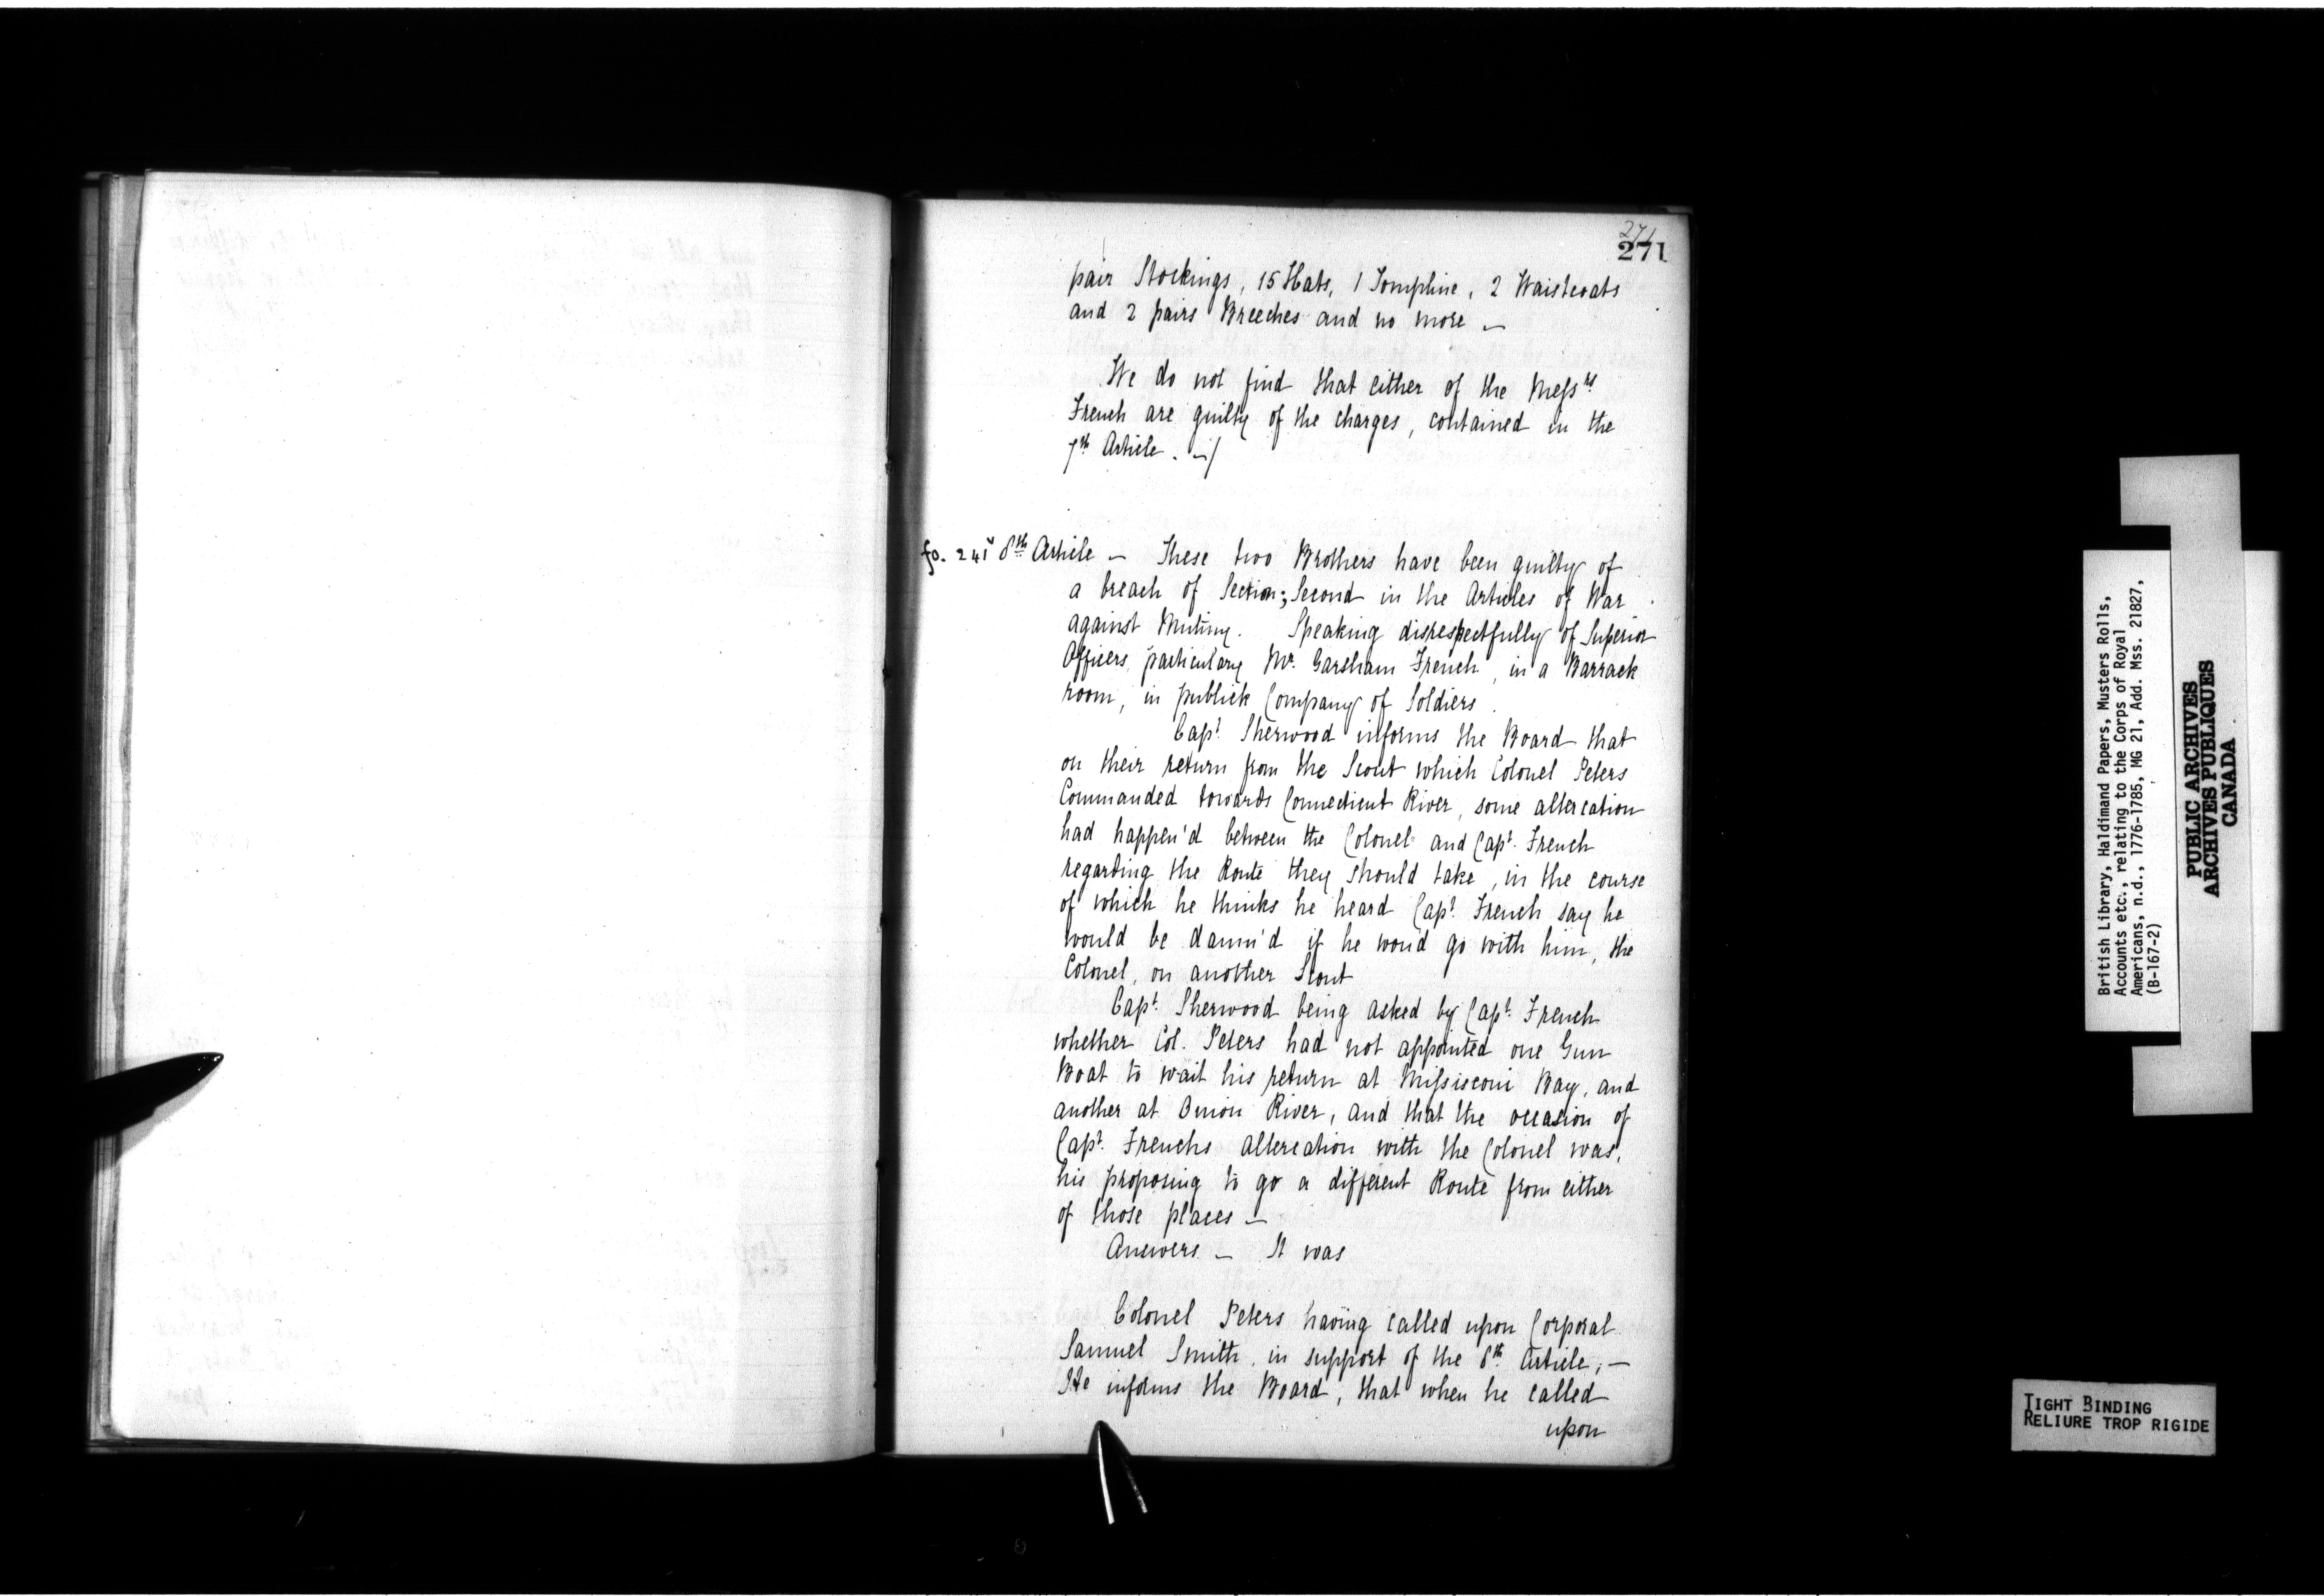 271
271
pair Stockings, 15 Hats, 1 Tompline, 2 Waistcoats
and 2 pairs Breeches and no more —
We do not find that either of the Messrs
French are guilty of the charges, contained in the
7th Article. —/
fo. 241v 8th Article — These two Brothers have been guilty of
a breach of Section; Second in the Articles of War
against Mutiny. Speaking disrespectfully of Superior
Officers, particulary Mr. Garsham French, in a Barrack
room, in publick Company of Soldiers.
Capt. Sherwood informs the Board that
on their return from the Scout which Colonel Peters
Commanded towards Connecticut River, some altercation
had happen'd between the Colonel and Capt. French
regarding the Route they should take, in the course
of which he thinks he heard Capt. French say he
would be damn'd if he woud go with him, the
Colonel, on another Scout
Capt. Sherwood being asked by Capt. French
whether Col. Peters had not appointed one Gun
Boat to wait his return at Missiscoui Bay, and
another at Onion River, and that the occasion of
Capt. Frenchs altercation with the Colonel was,
his proposing to go a different Route from either
of those places —
Answers — It was
Colonel Peters having called upon Corporal
Samuel Smith, in support of the 8th Article, —
He informs the Board, that when he called
upon
British Library, Haldimand Papers, Musters Rolls,
Accounts etc., relating to the Corps of Royal
Americans, n.d., 1776-1785, MG 21, Add. Mss. 21827,
(B-167-2)
PUBLIC ARCHIVES
ARCHIVES PUBLIQUES
CANADA
TIGHT BINDING
RELIURE TROP RIGIDE